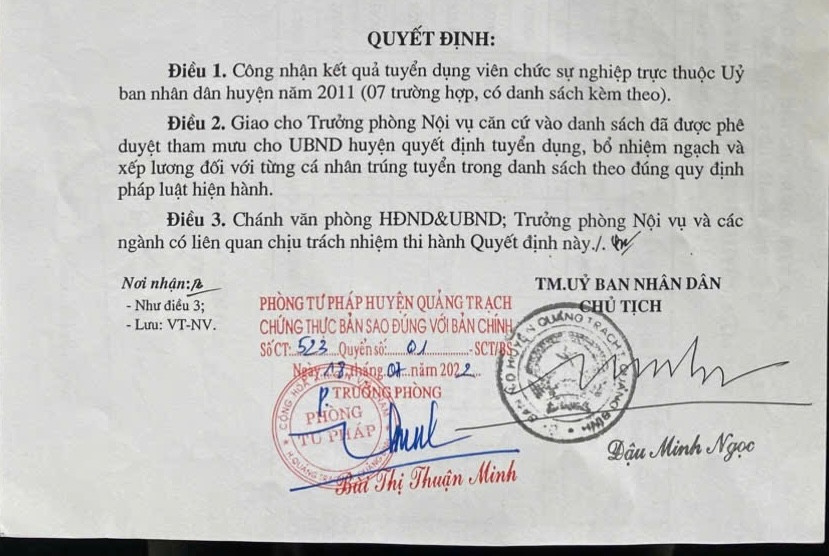 QUYẾT ĐỊNH:
Điều 1. Công nhận kết quả tuyển dụng viên chức sự nghiệp trực thuộc Uỷ
ban nhân dân huyện năm 2011 (07 trường hợp, có danh sách kèm theo).
Điều 2. Giao cho Trưởng phòng Nội vụ căn cứ vào danh sách đã được phê
duyệt tham mưu cho UBND huyện quyết định tuyển dụng, bổ nhiệm ngạch và
xếp lương đối với từng cá nhân trúng tuyển trong danh sách theo đúng quy định
pháp luật hiện hành.
Điều 3. Chánh văn phòng HĐND&UBND; Trưởng phòng Nội vụ và các
ngành có liên quan chịu trách nhiệm thi hành Quyết định này./.
Nơi nhận:
- Như điều 3;
- Lưu: VT-NV.
TM.UỶ BAN NHÂN DÂN
CHỦ TỊCH
PHÒNG TƯ PHÁP HUYỆN QUẢNG TRẠCH
CHỨNG THỰC BẢN SAO ĐÚNG VỚI BẢN CHÍNH
Số CT: 523 Quyển số: 01 - SCT/BS
Ngày 13 tháng 07 năm 2022
P TRƯỞNG PHÒNG
PHÒNG
TƯ PHÁP
Bùi Thị Thuận Minh
Đậu Minh Ngọc